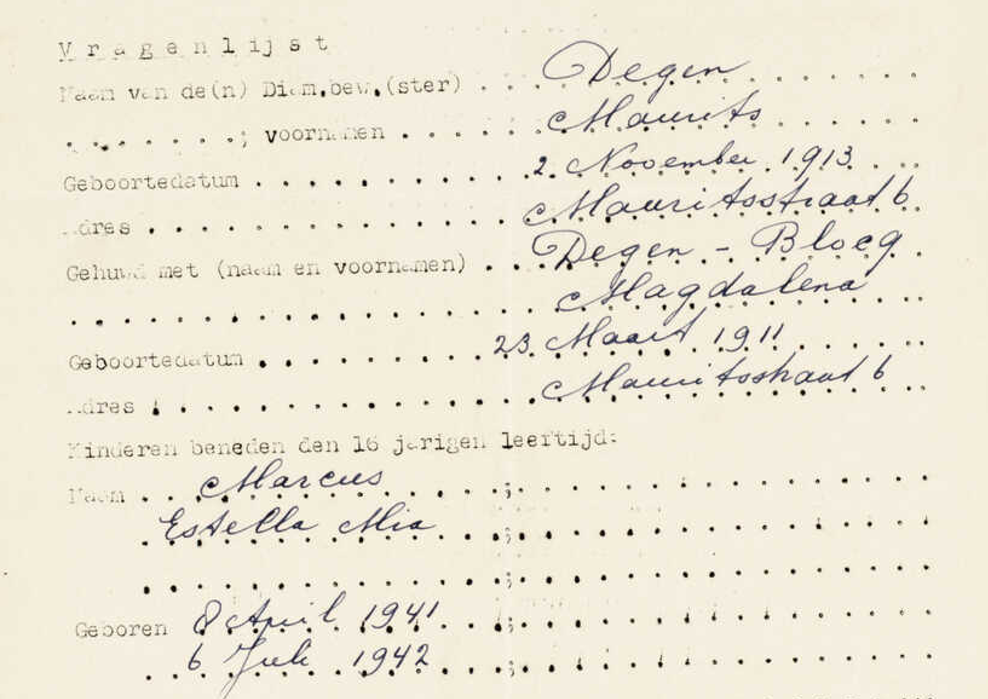 Vragenlijst
Naam van de(n) Diam.bew.(ster) . . . Degen
. . . . . . .; voornamen . . . . . Maurits
Geboortedatum . . . . . . . . . . 2 November 1913
Adres . . . . . . . . . . . . . . Mauritsstraat 6
Gehuwd met (naam en voornamen) . . Degen - Blocq
. . . . . . . . . . . . . . . . . Magdalena
Geboortedatum . . . . . . . . . 23 Maart 1911
Adres . . . . . . . . . . . . . . Mauritsstraat 6
Kinderen beneden den 16 jarigen leeftijd:
Naam . . Marcus . . . . . ; . . . . . . . . . . . . . .
Estella Mia . . . ; . . . . . . . . . . . . . .
. . . . . . . . . . . . . ; . . . . . . . . . . . . . .
Geboren 8 April 1941 . . ; . . . . . . . . . . . . . .
. . 6 Juli 1942 . . . ; . . . . . . . . . . . . . .